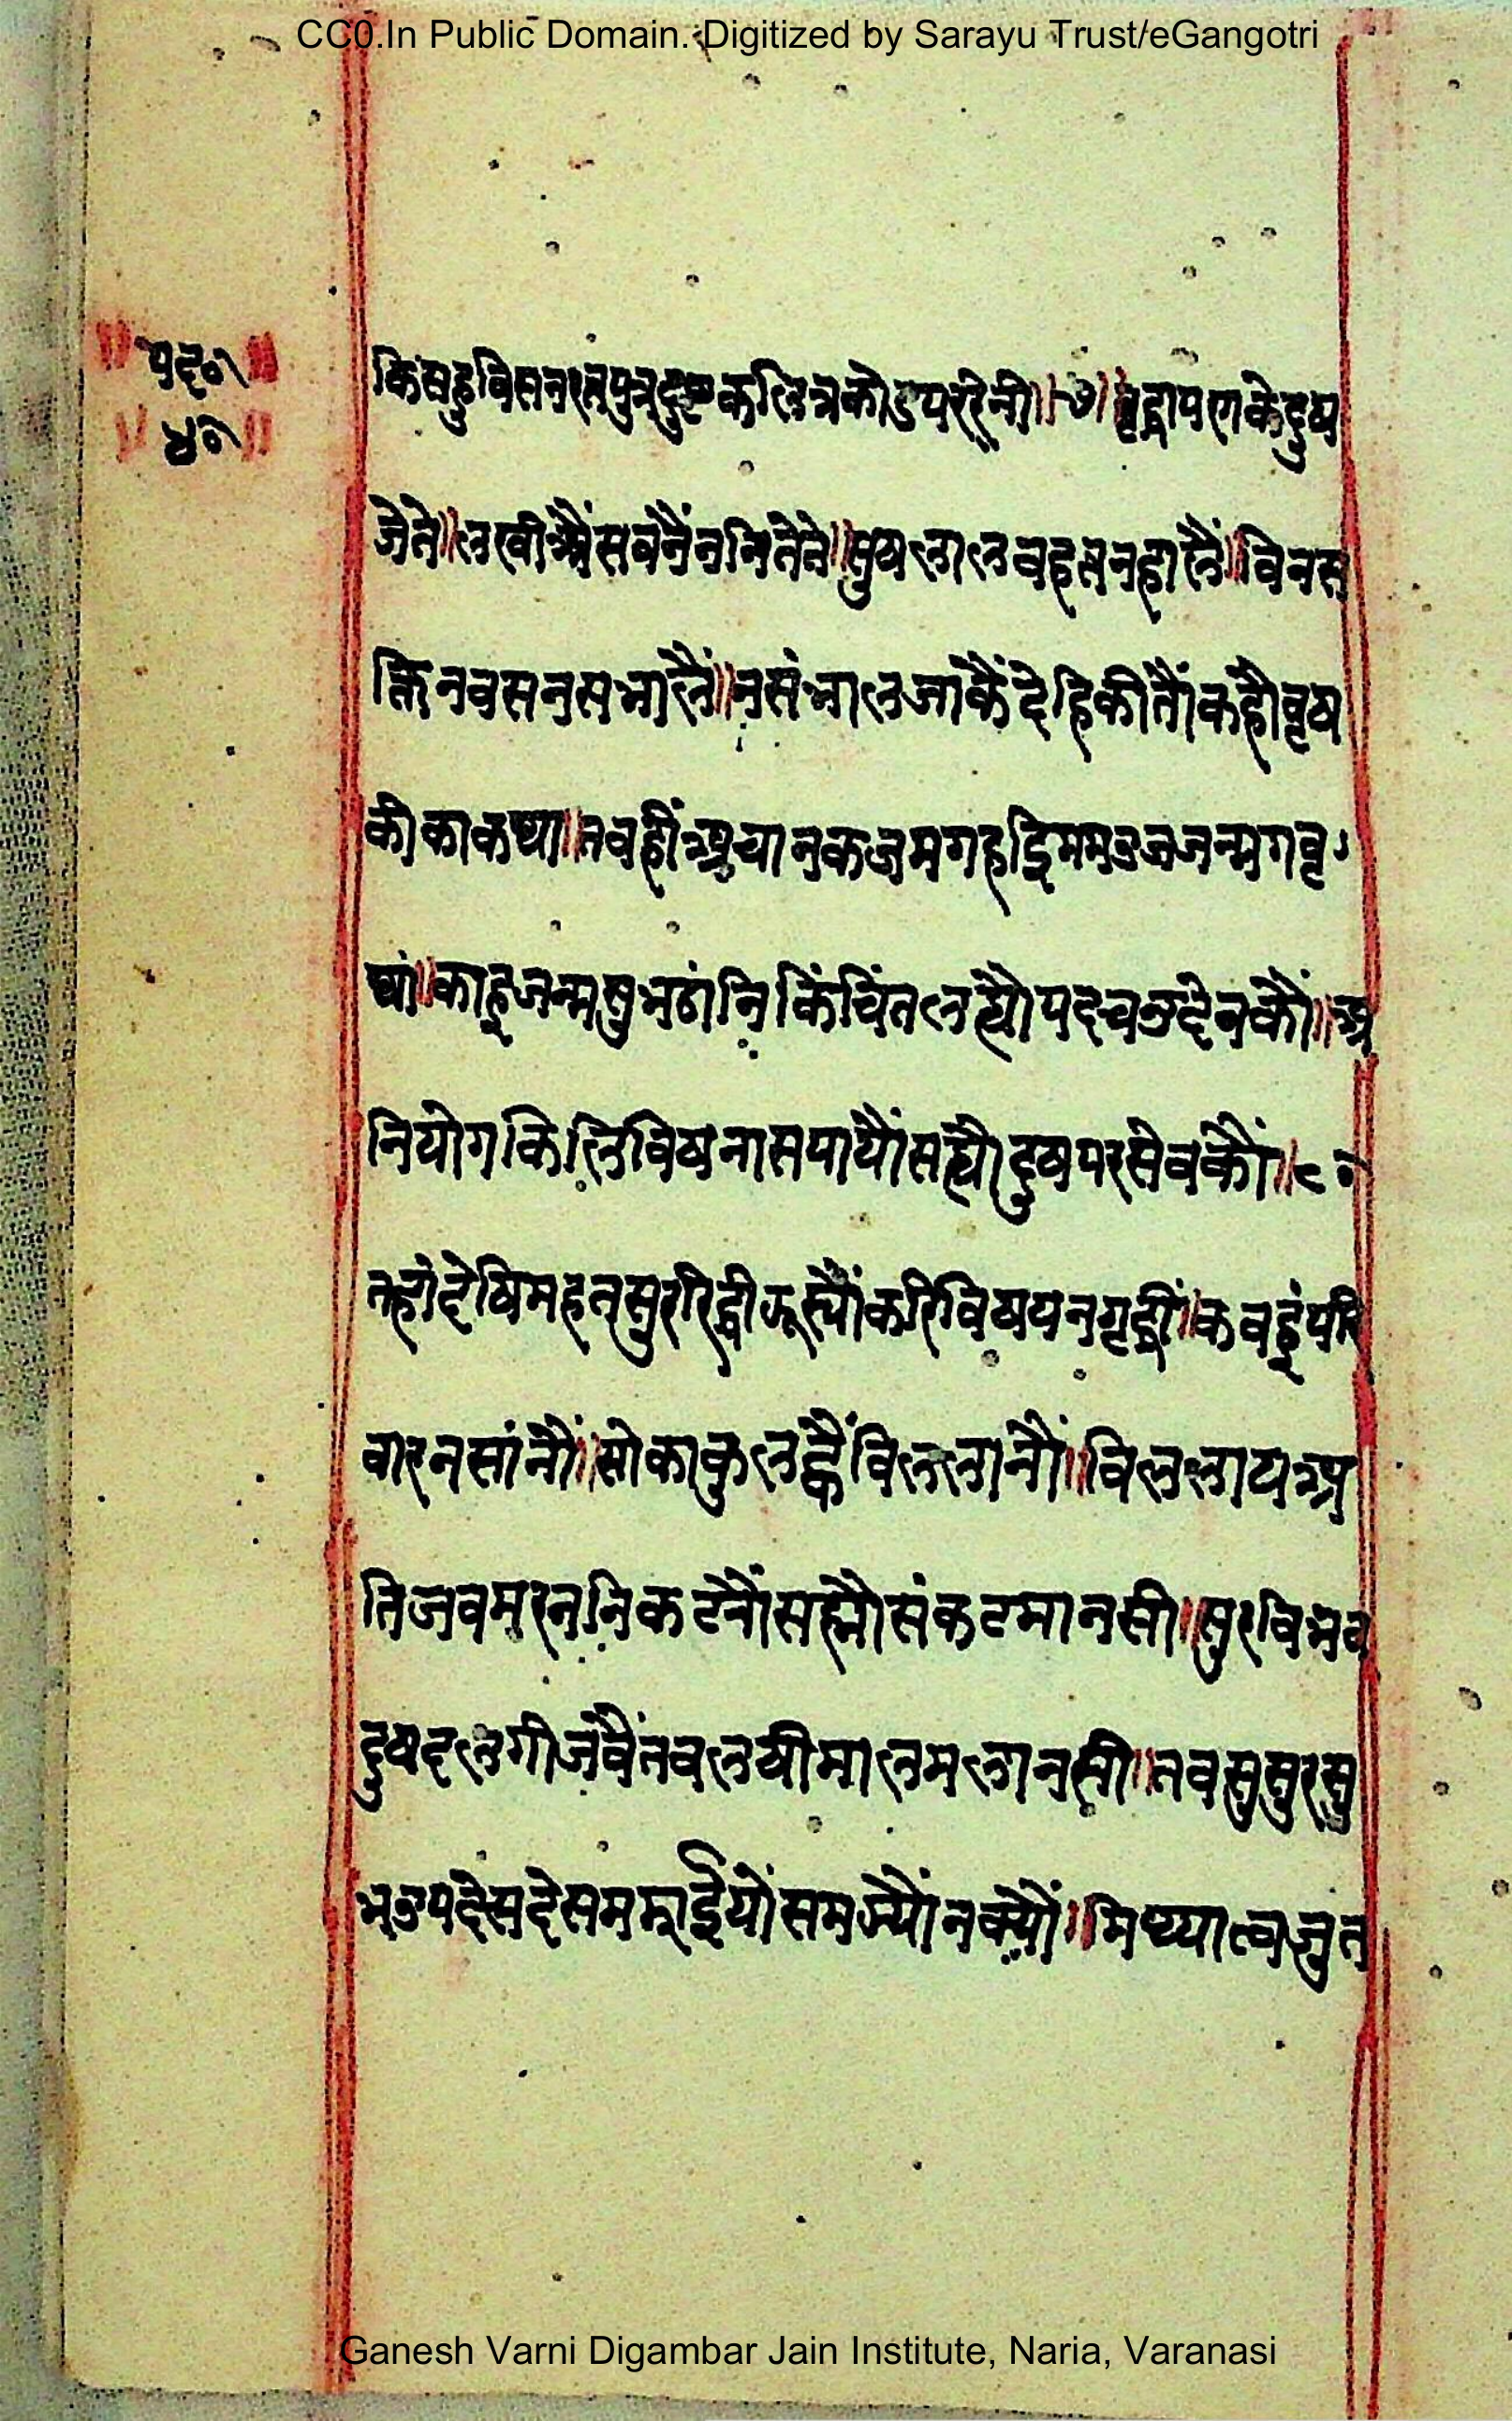 CC0.In Public Domain. Digitized by Sarayu Trust/eGangotri
॥पद०॥
॥४०॥
किंसहुविसनरतपुत्रदुष्टकलित्रकोउपररिनी॥७॥वृद्धापणकेदुष
जेते॥लखीऔंसवनैंननितेते॥मुषलालवहतनहालैं॥विनस
क्तिनवसनसभालैं॥नसंभालजाकैंदेहिकीतौंकहौवृष
कीकाकथा॥तवहींअचानकजमगहद्दिममउजजन्मगवृ
थां॥काहूजन्मसुभठांनिकिंचिंतलह्यौपदचउदेवकौं॥अ
नियोगकिलिविषनासपायौंसह्यौदुषपरसेवकौं॥८॥
तहांदेषिमहतसुरारिद्धीऊस्यौंकरिविषयनगृद्धीं॥कवहूंपरि
वारनसांनौं॥सोकाकुलह्वैंविललानौं॥विललायअ
तिजवमरननिकटनौंसह्यौसंकटमानसी॥सुरविभव
दुषदलगीजंवैंतवलषीमालमलानसी॥तवसुसुरसु
भउपदेसदेसमझाईयोंसमझ्यौंनक्यौं॥मिथ्यात्वजुत
Ganesh Varni Digambar Jain Institute, Naria, Varanasi